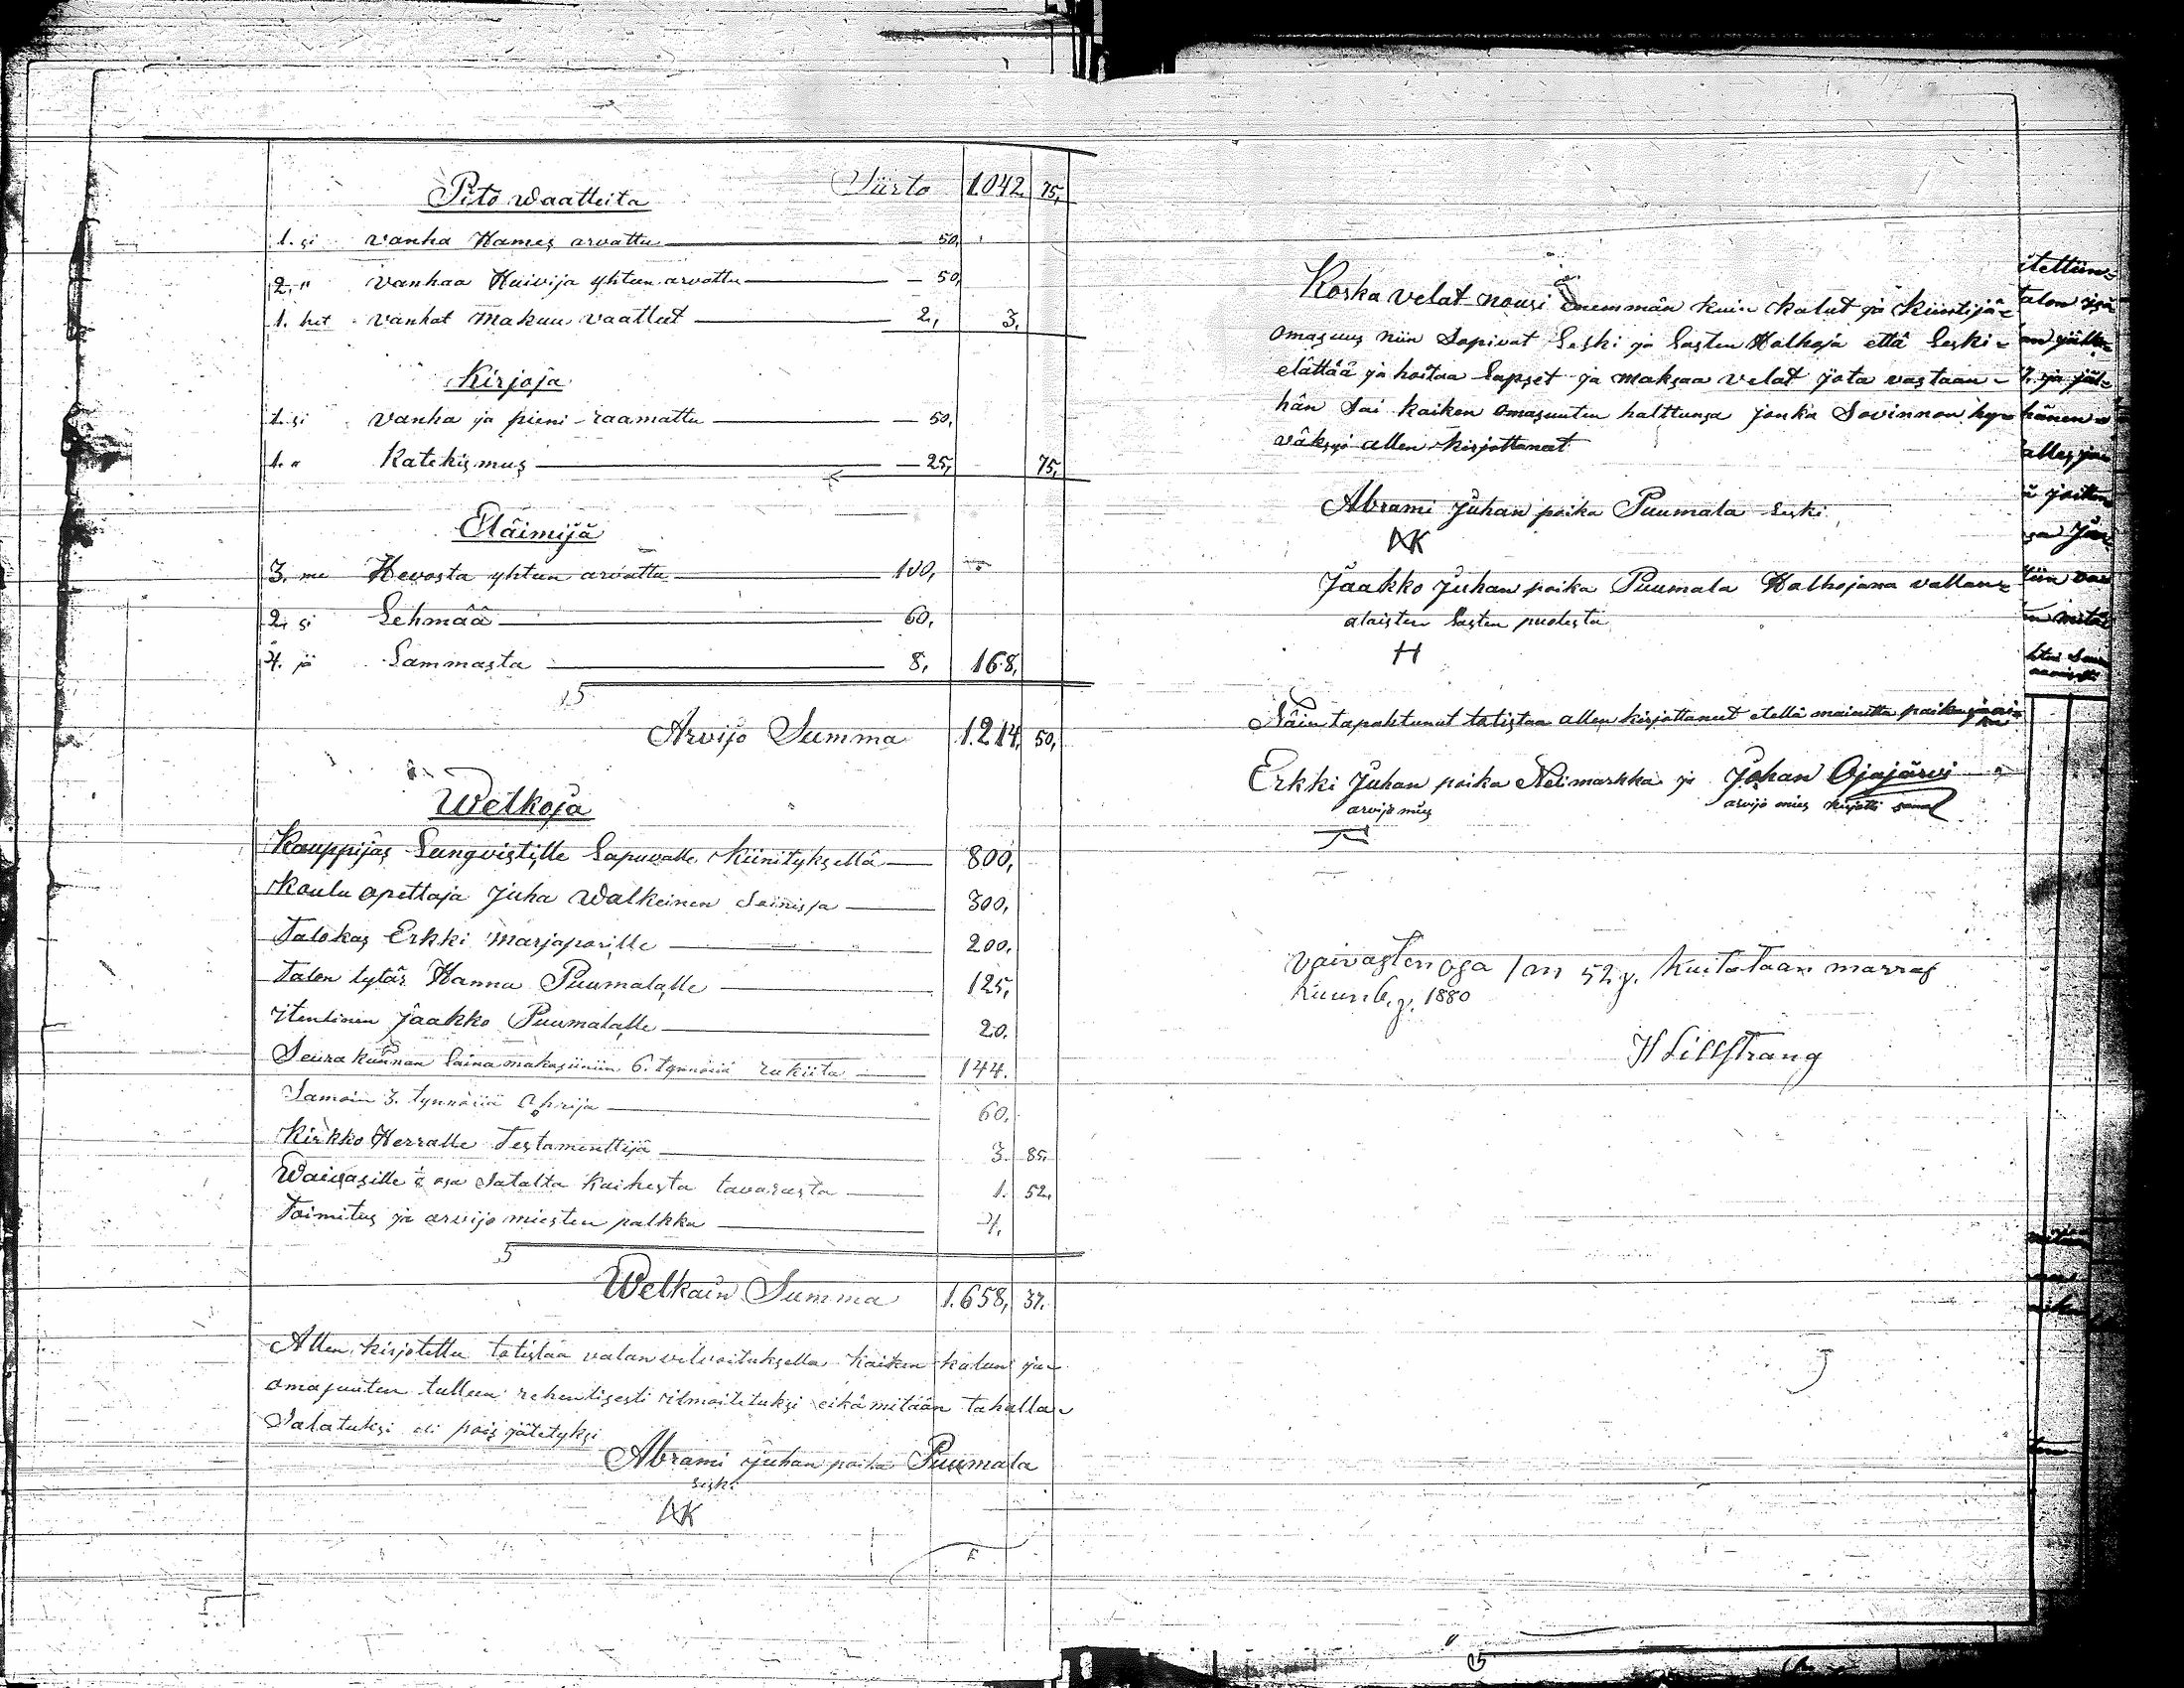 Siirto 1042. 75,
Pito waatteita
1. si vanha Hames arvattu — 50,
2. " vanhaa Huivija yhteen arvattu — 50,
1. het vanhat makuu vaatteet 2, 3.
Kirjoja
1. si vanha ja pieni raamattu — 50,
1. " Katekismus — 25, 75,
Eläimijä
3. me Hevosta yhteen arvattu 100,
2. si Lehmää 60,
4. jä Lammasta 8, 168,
Arvijo Summa 1.214, 50,
Welkoja
Kauppijas Lungvistille Lapuvalle kiinityksellä 800,
Koulu opettaja Juha Walkeinen 300,
Talokas Erkki Marjaporille 200.
Talon tytär Hanna Puumalalle 125,
Itenlinen Jaakko Puumalalle 20.
Seura kunnan Laina makasiiniin 6. tynnöriä rukiita 144.
Samoin 3. tynnöriä Ohrija 60.
Kirkko Herralle Testamenttijä 3. 85.
Waivasille ⅛ osa Satalta kaikesta tavarasta 1. 52.
Toimitus ja arvijo miesten palkka 4.
Welkain Summa 1.658, 37.
Allen kirjotettu totistaa valan velvoituksella kaiken kalun ja
omasuuten tulleen rehentisesti ilmoitetuksi eikä mitään tahalla
Salatuksi eli pois jätetyksi
Abrami Juhan poika Puumala
Leski
AK
Koska velat nousi enemmän kuin kalut ja kiintijä=
omasuus niin Sopivat Leski ja Lasten Holhoja että Leski=
elättää ja hoitaa Lapset ja maksaa velat jota vastaan-
hän Sai kaiken omasuuten halttunsa jonka Sovinnon hy=
väksyi allen kirjottanat
Abrami Juhan poika Puumala Leski
AK
Jaakko Juhan poika Puumala Holhojana vallan=
alaisten Lasten puolesta
H
Näin tapahtunut totistaa allen kirjottanut etellä mainittu
Erkki Juhan poika Nelimarkka ja Johan Ojajärvi
arvijo mies arvijo mies kirjotti
Vaivasten osa 1 m 52 p. kuitataan marras
kuun 6. p. 1880
H Lillstrang